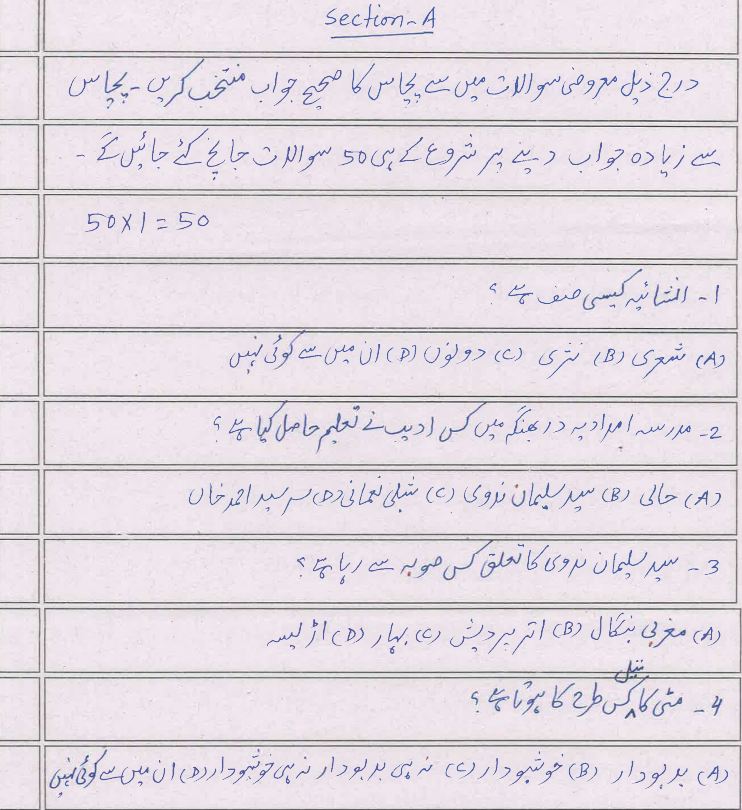 Section-A
درج ذیل معروضی سوالات میں سے پچاس کا صحیح جواب منتخب کریں۔ پچاس
سے زیادہ جواب دینے پر شروع کے ہی 50 سوالات جانچے کئے جائیں گے۔
50X1=50
1- انشائیہ کیسی صنف ہے؟
(A) شعری (B) نثری (C) دونوں (D) ان میں سے کوئی نہیں
2- مدرسہ امدادیہ دربھنگہ میں کس ادیب نے تعلیم حاصل کیا ہے؟
(A) حالی (B) سید سلیمان ندوی (C) شبلی نعمانی (D) سر سید احمد خاں
3- سید سلیمان ندوی کا تعلق کس صوبہ سے رہا ہے؟
(A) مغربی بنگال (B) اتر پردیش (C) بہار (D) اڑیسہ
4- مٹی کا تیل کس طرح کا ہوتا ہے؟
(A) بدبودار (B) خوشبودار (C) نہ ہی بدبودار نہ ہی خوشبودار (D) ان میں سے کوئی نہیں